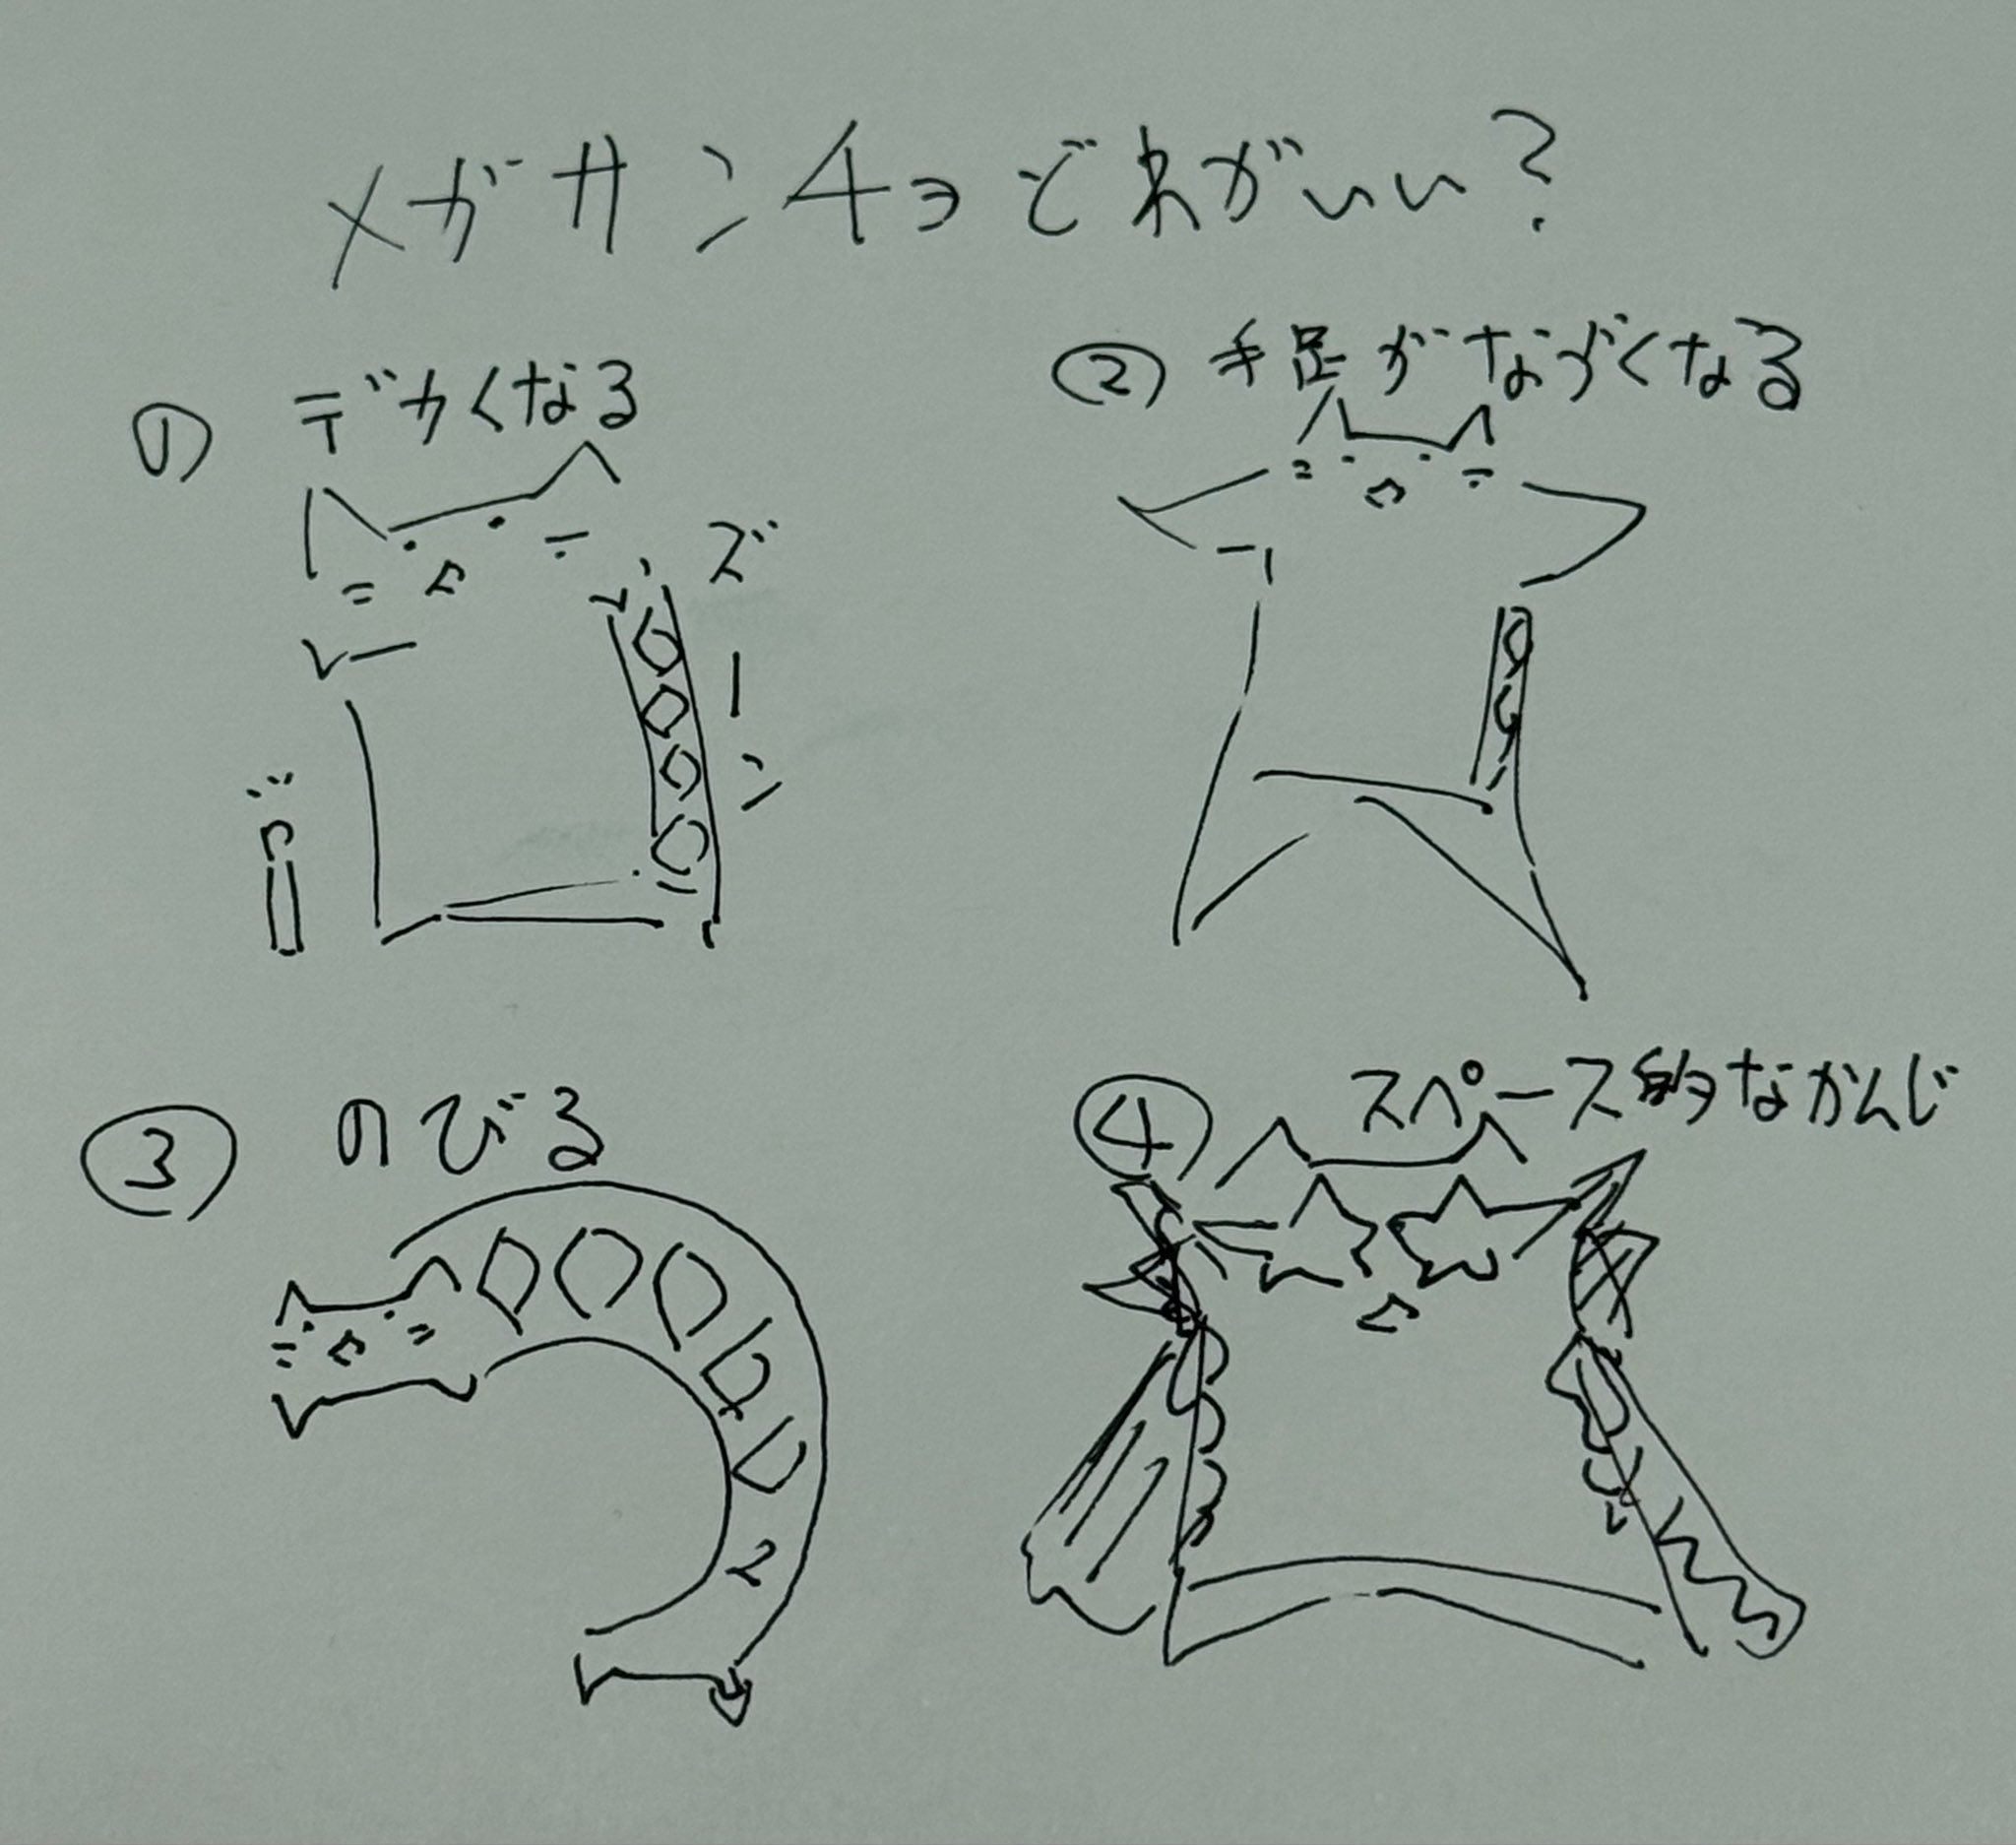 メガサンチョどれがいい?
① デカくなる
ズーン
② 手足がながくなる
③ のびる
④ スペース的なかんじ